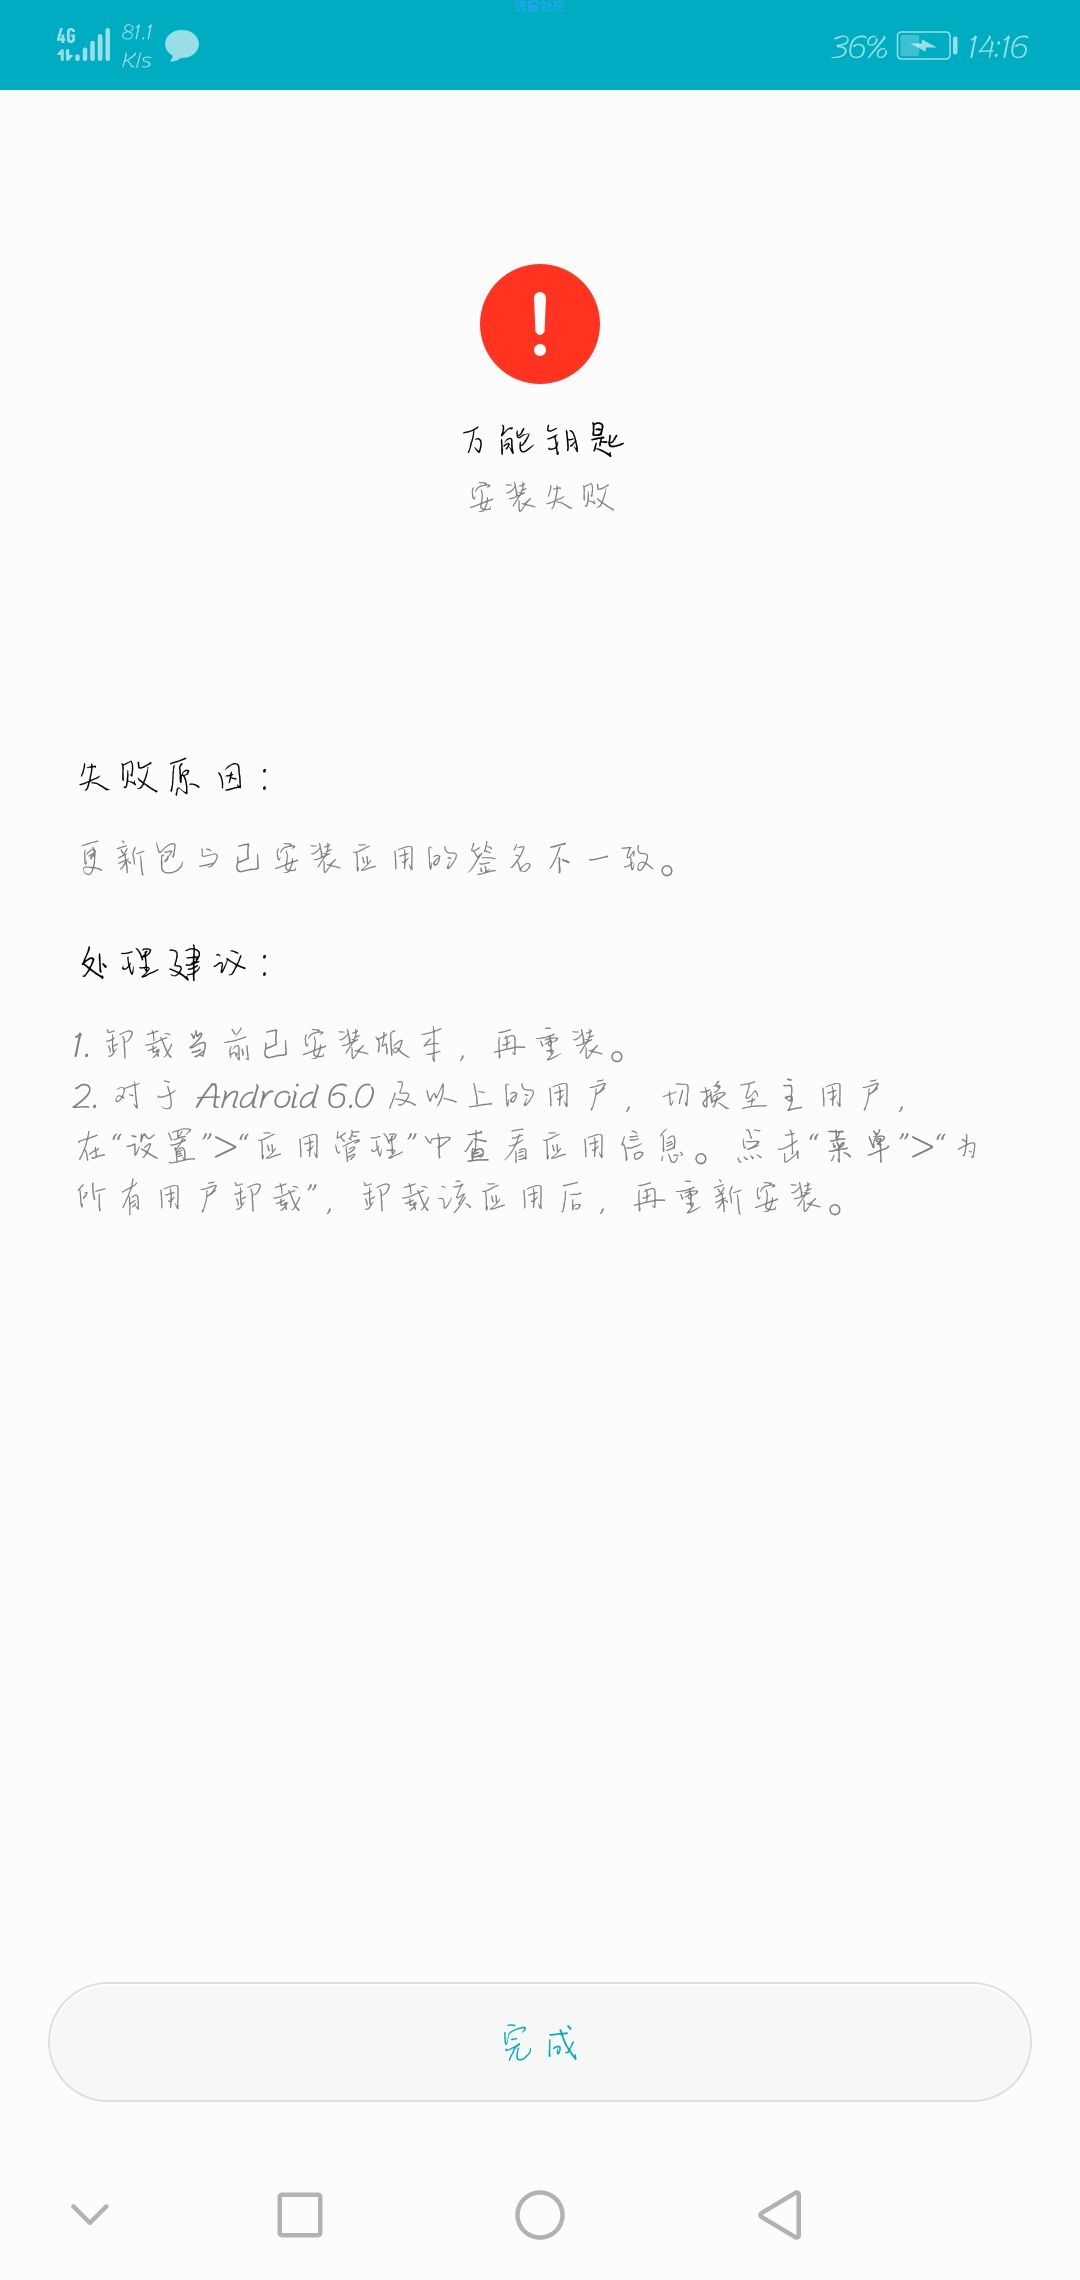 流星社区
4G 81.1 K/s 36% 14:16
万能钥匙
安装失败
失败原因：
更新包与已安装应用的签名不一致。
处理建议：
1. 卸载当前已安装版本，再重装。
2. 对于 Android 6.0 及以上的用户，切换至主用户，
在“设置”>“应用管理”中查看应用信息。点击“菜单”>“为
所有用户卸载”，卸载该应用后，再重新安装。
完成